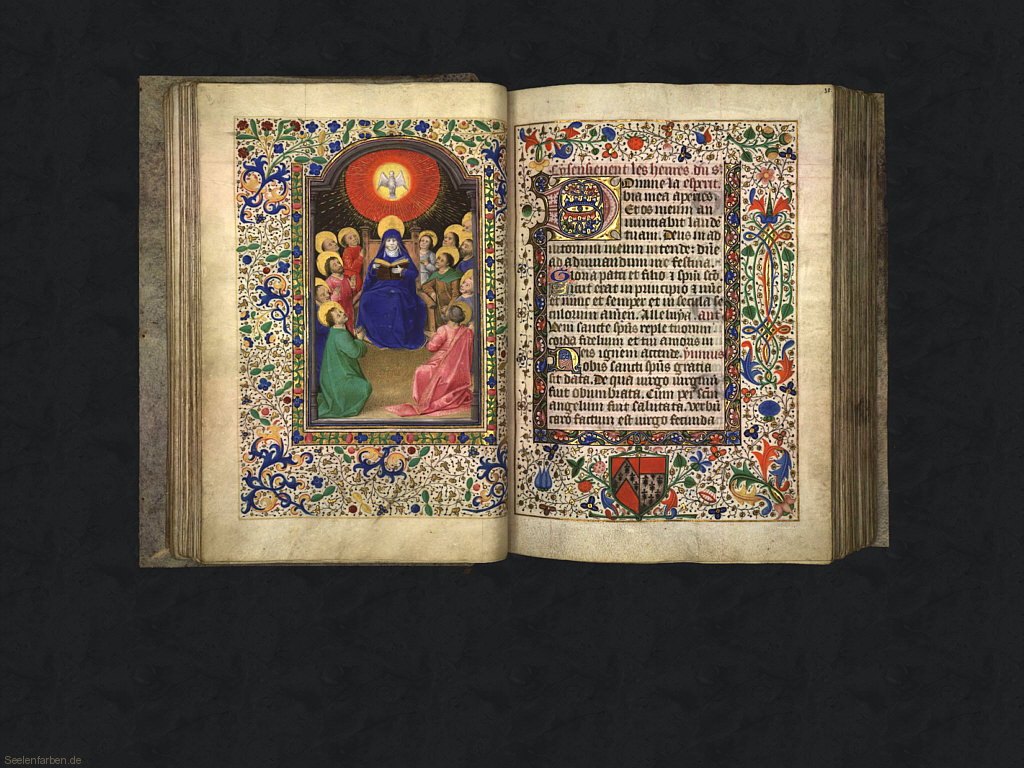 Cy sensiuent les heures du s
Domine la esperit.
bia mea aperies.
Et os meum an
nunciabit laude
tuam. Deus in ad
iutorium meum intende: dñe
ad adiuuandum me festina.
Gloria patri et filio ⁊ spũ scõ
Sicut erat in principio ⁊ nũc
et nunc et semper et in secula se
culorum amen. Alleluya. ant
Veni sancte spũs reple tuorum
corda fidelium et tui amoris in
eis ignem accende. ymnus
Nobis sancti spũs gracia
sit data. De qua uirgo uirginũ
fuit obumbrata. Cum per scm̃
angelum fuit salutata. Verbũ
caro factum est uirgo fecunda
Seelenfarben.de